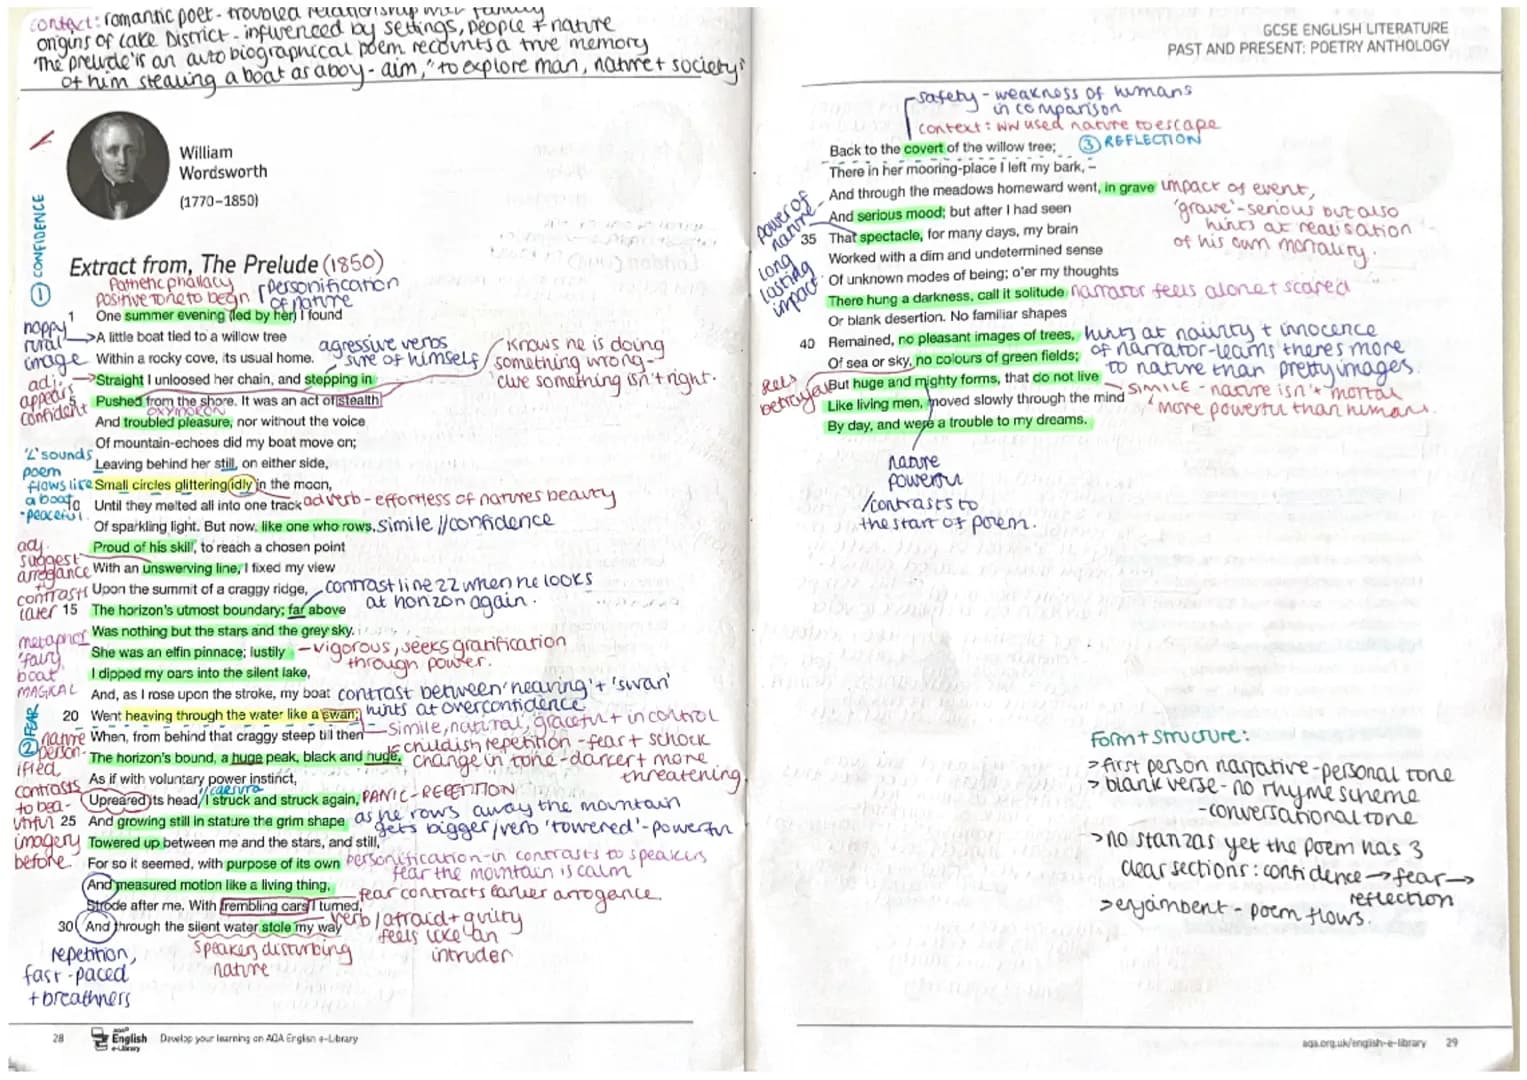 context: romantic poet - troubled relationship with family
origins of Lake District - influenced by settings, people + nature
'The prelude' is an autobiographical poem recounts a true memory
of him stealing a boat as a boy - aim, "to explore man, nature + society"
William
Wordsworth
(1770–1850)
① CONFIDENCE
Extract from, The Prelude (1850)
Pathetic phallacy
positive tone to begin
personification
of nature
1 One summer evening (led by her) I found
A little boat tied to a willow tree
Within a rocky cove, its usual home.
Straight I unloosed her chain, and stepping in
5 Pushed from the shore. It was an act of stealth
And troubled pleasure, nor without the voice
Of mountain-echoes did my boat move on;
Leaving behind her still, on either side,
Small circles glittering idly in the moon,
10 Until they melted all into one track
Of sparkling light. But now, like one who rows,
Proud of his skill, to reach a chosen point
With an unswerving line, I fixed my view
Upon the summit of a craggy ridge,
15 The horizon's utmost boundary; far above
Was nothing but the stars and the grey sky.
She was an elfin pinnace; lustily
I dipped my oars into the silent lake,
And, as I rose upon the stroke, my boat
20 Went heaving through the water like a swan;
When, from behind that craggy steep till then
The horizon's bound, a huge peak, black and huge,
As if with voluntary power instinct,
Upreared its head. I struck and struck again,
25 And growing still in stature the grim shape
Towered up between me and the stars, and still,
For so it seemed, with purpose of its own
And measured motion like a living thing,
Strode after me. With trembling oars I turned,
30 And through the silent water stole my way
happy
rural
image
adj.
appears
confident
agressive verbs
sure of himself
knows he is doing
something wrong -
clue something isn't right.
oxymoron
'L' sounds
poem
flows like
a boat
-peaceful.
adverb - effortless of natures beauty
simile // confidence
adj.
suggest
arrogance
contrasts
later
contrast line 22 when he looks
at horizon again.
metaphor
'fairy
boat
MAGICAL
- vigorous, seeks gratification
through power.
contrast between 'heaving' + 'swan'
hints at overconfidence
simile, natural, graceful + in control
② FEAR
nature
person-
ified
contrasts
to bea-
utiful
imagery
before.
childish repetition - fear + schock
change in tone - darker + more
threatening.
caesura
PANIC - REPETITION
as he rows away the mountain
gets bigger/verb 'towered' - powerful
personification - in contrasts to speakers
fear the mountain is calm
fear contrasts earlier arrogance.
verb / afraid + guilty
feels like an
intruder
speakers disturbing
nature
repetition,
fast-paced
+ breathness
28
AQA
English
e-Library
Develop your learning on AQA English e-Library
GCSE ENGLISH LITERATURE
PAST AND PRESENT: POETRY ANTHOLOGY
safety - weakness of humans
in comparison
context: WW used nature to escape
③ REFLECTION
Back to the covert of the willow tree;
There in her mooring-place I left my bark, –
And through the meadows homeward went, in grave
And serious mood; but after I had seen
35 That spectacle, for many days, my brain
Worked with a dim and undetermined sense
Of unknown modes of being; o'er my thoughts
There hung a darkness, call it solitude
Or blank desertion. No familiar shapes
40 Remained, no pleasant images of trees,
Of sea or sky, no colours of green fields;
But huge and mighty forms, that do not live
Like living men, moved slowly through the mind
By day, and were a trouble to my dreams.
power of
nature
long
lasting
impact
impact of event,
'grave' - serious but also
hints at realisation
of his own mortality.
narrator feels alone + scared
hints at naivity + innocence
of narrator - learns theres more
to nature than pretty images.
feels
betrayed
SIMILE - nature isn't mortal
'more powerful than humans.
nature
powerful
/contrasts to
the start of poem.
Form + Structure:
> first person narrative - personal tone
> blank verse - no rhyme scheme
- conversational tone
> no stanzas yet the poem has 3
clear sections: confidence → fear →
reflection
> enjambent - poem flows.
aqa.org.uk/english-e-library 29